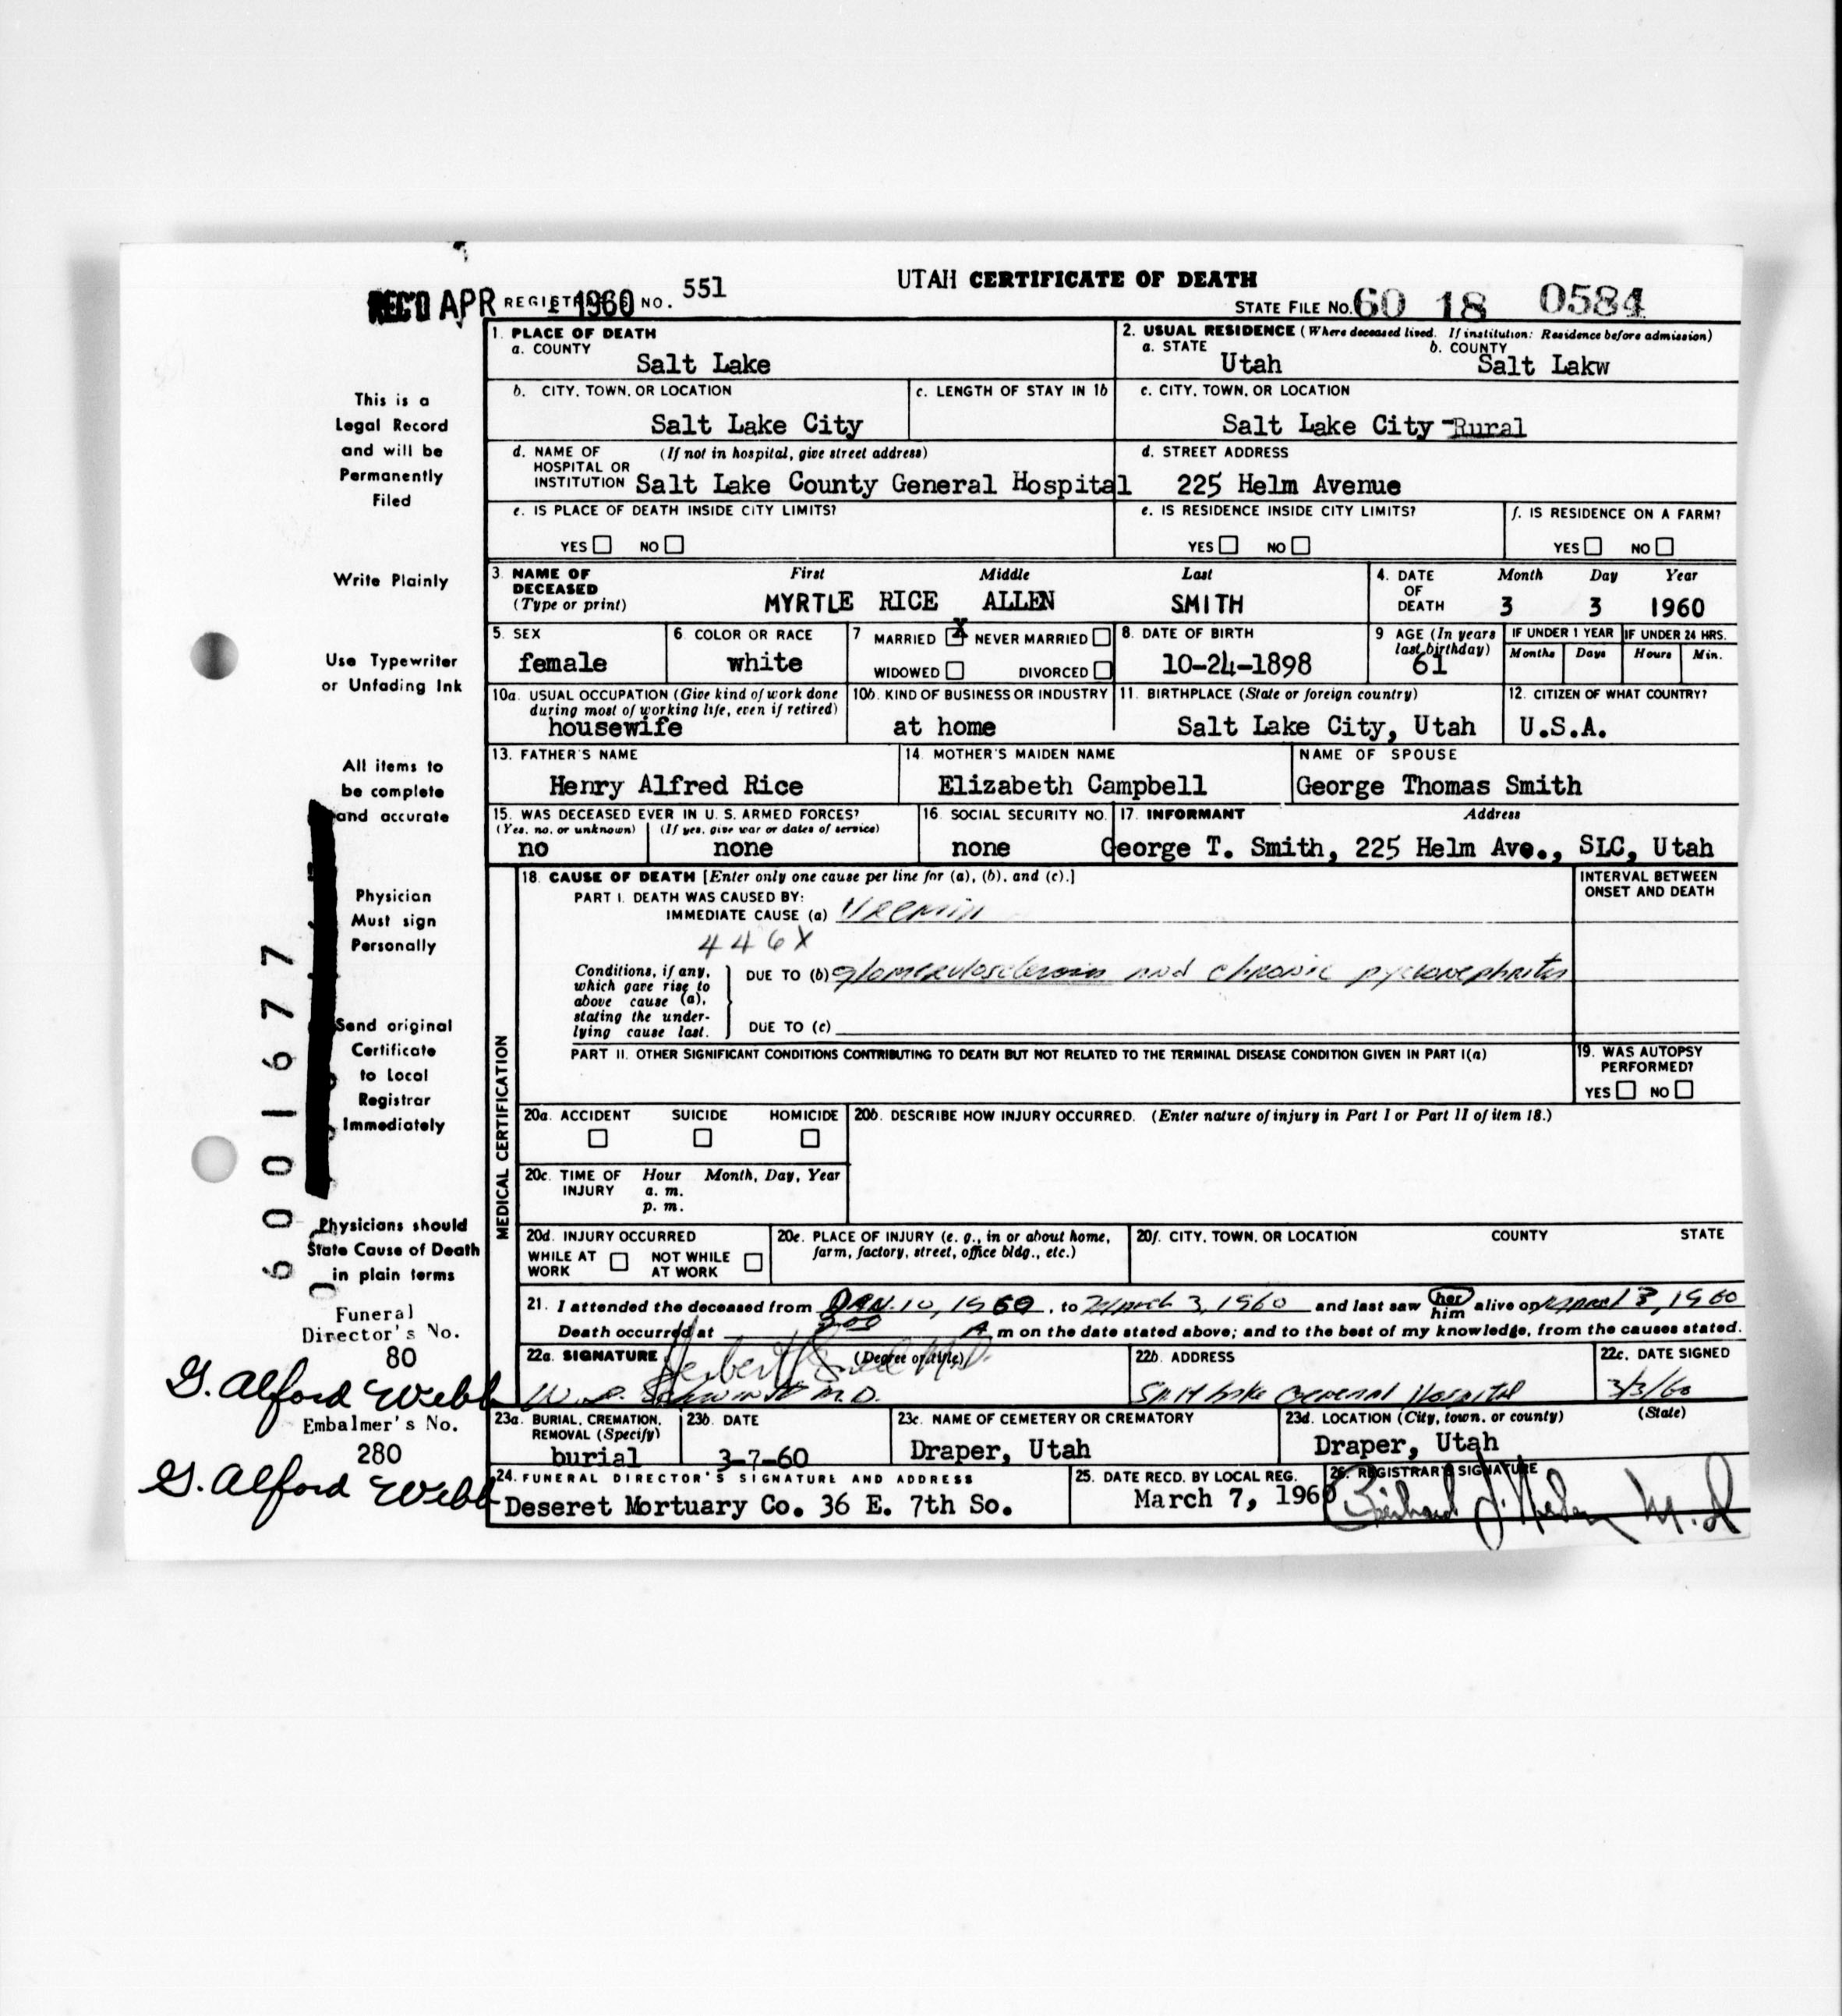 UTAH CERTIFICATE OF DEATH
REC'D APR 1 1960 REGISTRAR'S NO. 551
STATE FILE NO. 60 18 0584
1. PLACE OF DEATH
a. COUNTY
Salt Lake
2. USUAL RESIDENCE (Where deceased lived. If institution: Residence before admission)
a. STATE b. COUNTY
Utah Salt Lakw
b. CITY, TOWN, OR LOCATION
Salt Lake City
c. LENGTH OF STAY IN 1b
c. CITY, TOWN, OR LOCATION
Salt Lake City-Rural
d. NAME OF HOSPITAL OR INSTITUTION (If not in hospital, give street address)
Salt Lake County General Hospital
d. STREET ADDRESS
225 Helm Avenue
e. IS PLACE OF DEATH INSIDE CITY LIMITS?
YES NO
e. IS RESIDENCE INSIDE CITY LIMITS?
YES NO
f. IS RESIDENCE ON A FARM?
YES NO
3. NAME OF DECEASED (Type or print)
First Middle Last
MYRTLE RICE ALLEN SMITH
4. DATE OF DEATH
Month Day Year
3 3 1960
5. SEX
female
6. COLOR OR RACE
white
7 MARRIED X NEVER MARRIED
WIDOWED DIVORCED
8. DATE OF BIRTH
10-24-1898
9 AGE (In years last birthday)
61
IF UNDER 1 YEAR
Months Days
IF UNDER 24 HRS.
Hours Min.
10a. USUAL OCCUPATION (Give kind of work done during most of working life, even if retired)
housewife
10b. KIND OF BUSINESS OR INDUSTRY
at home
11. BIRTHPLACE (State or foreign country)
Salt Lake City, Utah
12. CITIZEN OF WHAT COUNTRY?
U.S.A.
13. FATHER'S NAME
Henry Alfred Rice
14. MOTHER'S MAIDEN NAME
Elizabeth Campbell
NAME OF SPOUSE
George Thomas Smith
15. WAS DECEASED EVER IN U. S. ARMED FORCES?
(Yes, no, or unknown) (If yes, give war or dates of service)
no none
16. SOCIAL SECURITY NO.
none
17. INFORMANT Address
George T. Smith, 225 Helm Ave., SLC, Utah
MEDICAL CERTIFICATION
18. CAUSE OF DEATH [Enter only one cause per line for (a), (b), and (c).]
INTERVAL BETWEEN ONSET AND DEATH
PART I. DEATH WAS CAUSED BY:
IMMEDIATE CAUSE (a) Uremia
446X
Conditions, if any, which gave rise to above cause (a), stating the underlying cause last.
DUE TO (b) glomerulosclerosis and chronic pyelonephritis
DUE TO (c)
PART II. OTHER SIGNIFICANT CONDITIONS CONTRIBUTING TO DEATH BUT NOT RELATED TO THE TERMINAL DISEASE CONDITION GIVEN IN PART I(a)
19. WAS AUTOPSY PERFORMED?
YES NO
20a. ACCIDENT SUICIDE HOMICIDE
20b. DESCRIBE HOW INJURY OCCURRED. (Enter nature of injury in Part I or Part II of item 18.)
20c. TIME OF INJURY Hour Month, Day, Year
a. m.
p. m.
20d. INJURY OCCURRED
WHILE AT WORK NOT WHILE AT WORK
20e. PLACE OF INJURY (e. g., in or about home, farm, factory, street, office bldg., etc.)
20f. CITY, TOWN, OR LOCATION COUNTY STATE
21. I attended the deceased from JAN. 10, 1960, to March 3, 1960 and last saw her him alive on March 3, 1960
Death occurred at 3:00 A m on the date stated above; and to the best of my knowledge, from the causes stated.
22a. SIGNATURE (Degree or title)
M.D.
22b. ADDRESS
Salt Lake General Hospital
22c. DATE SIGNED
3/3/60
23a. BURIAL, CREMATION, REMOVAL (Specify)
burial
23b. DATE
3-7-60
23c. NAME OF CEMETERY OR CREMATORY
Draper, Utah
23d. LOCATION (City, town, or county) (State)
Draper, Utah
24. FUNERAL DIRECTOR'S SIGNATURE AND ADDRESS
Deseret Mortuary Co. 36 E. 7th So.
25. DATE RECD. BY LOCAL REG.
March 7, 1960
26. REGISTRAR'S SIGNATURE
M.D
This is a
Legal Record
and will be
Permanently
Filed
Write Plainly
Use Typewriter
or Unfading Ink
All items to
be complete
and accurate
Physician
Must sign
Personally
Send original
Certificate
to Local
Registrar
Immediately
Physicians should
State Cause of Death
in plain terms
6001677
Funeral
Director's No.
80
G. Alford Webb
Embalmer's No.
280
G. Alford Webb